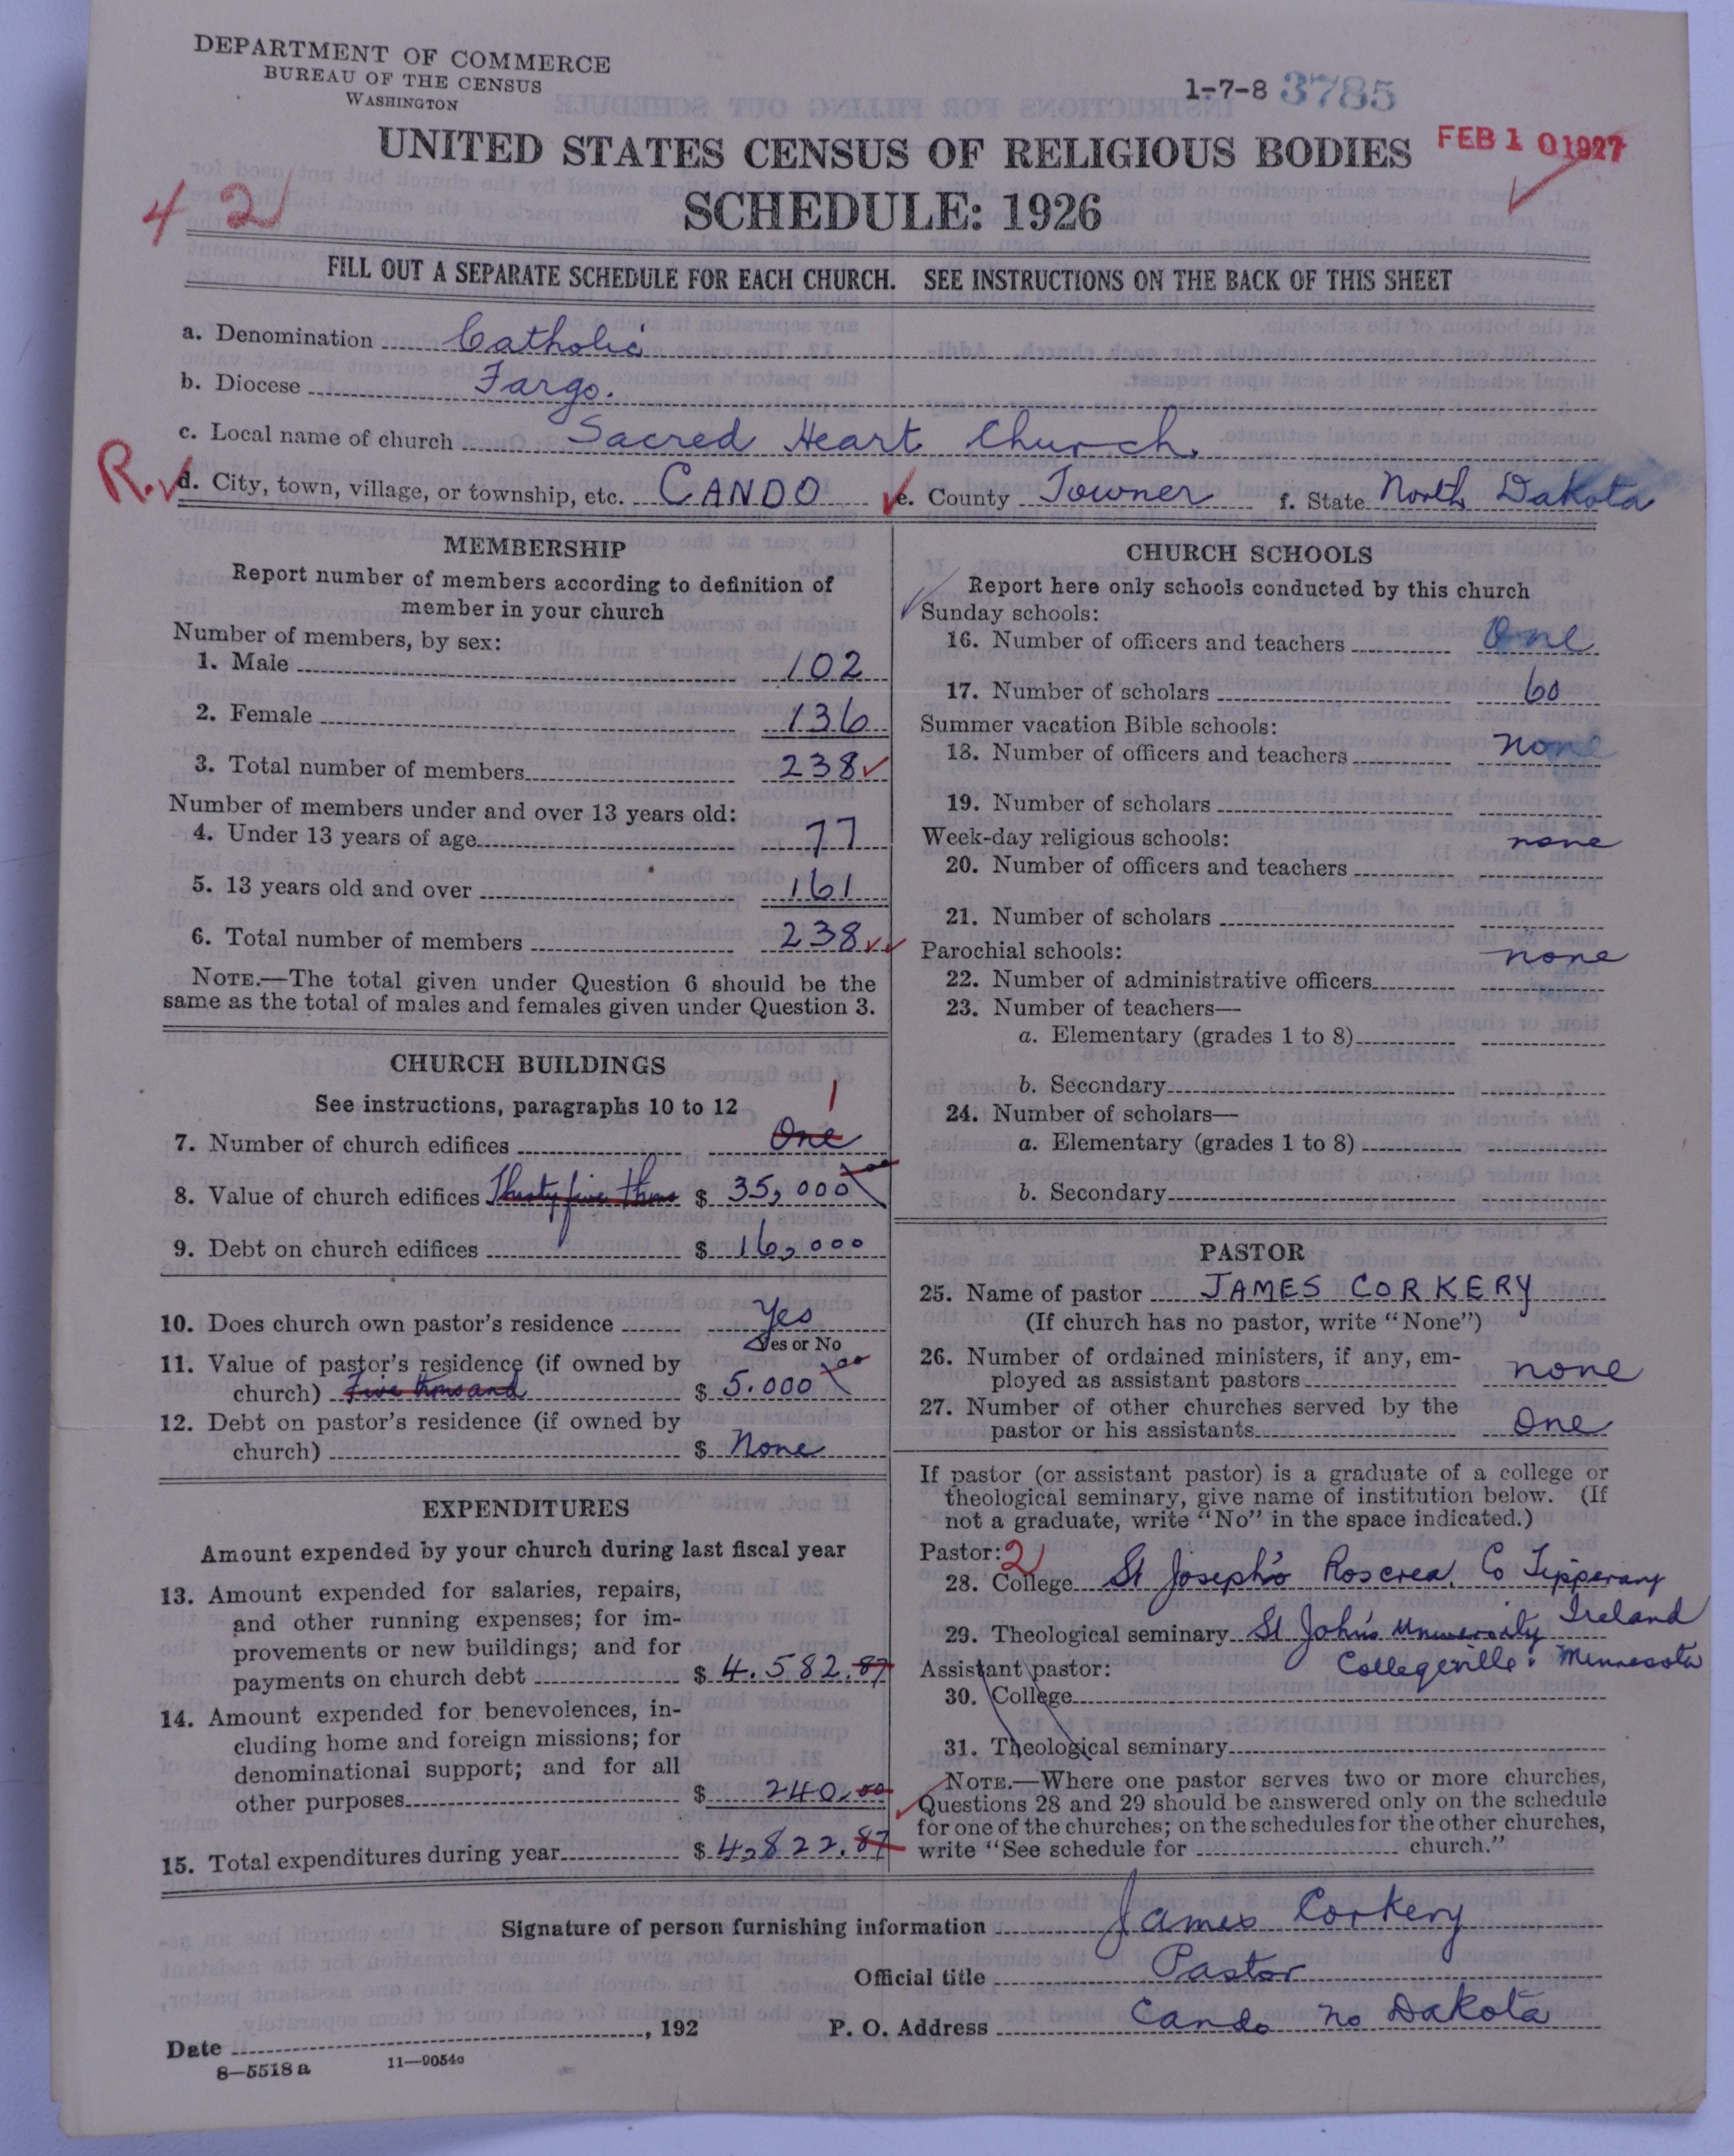 DEPARTMENT OF COMMERCE
BUREAU OF THE CENSUS
WASHINGTON
1-7-8 3785
UNITED STATES CENSUS OF RELIGIOUS BODIES
FEB 10 1927
42
SCHEDULE: 1926
FILL OUT A SEPARATE SCHEDULE FOR EACH CHURCH. SEE INSTRUCTIONS ON THE BACK OF THIS SHEET
a. Denomination Catholic
b. Diocese Fargo.
c. Local name of church Sacred Heart Church.
R. d. City, town, village, or township, etc. CANDO e. County Towner f. State North Dakota
MEMBERSHIP
Report number of members according to definition of
member in your church
Number of members, by sex:
1. Male 102
2. Female 136
3. Total number of members 238
Number of members under and over 13 years old:
4. Under 13 years of age 77
5. 13 years old and over 161
6. Total number of members 238
NOTE.—The total given under Question 6 should be the
same as the total of males and females given under Question 3.
CHURCH BUILDINGS
See instructions, paragraphs 10 to 12
1
7. Number of church edifices One
8. Value of church edifices Thirty five thous $ 35,000 00
9. Debt on church edifices $ 16,000
10. Does church own pastor's residence Yes
Yes or No
11. Value of pastor's residence (if owned by
church) Five thousand $ 5.000 00
12. Debt on pastor's residence (if owned by
church) $ None
EXPENDITURES
Amount expended by your church during last fiscal year
13. Amount expended for salaries, repairs,
and other running expenses; for im-
provements or new buildings; and for
payments on church debt $ 4.582.87
14. Amount expended for benevolences, in-
cluding home and foreign missions; for
denominational support; and for all
other purposes $ 240.00
15. Total expenditures during year $ 4,822.87
CHURCH SCHOOLS
Report here only schools conducted by this church
Sunday schools:
16. Number of officers and teachers One
17. Number of scholars 60
Summer vacation Bible schools:
18. Number of officers and teachers none
19. Number of scholars
Week-day religious schools: none
20. Number of officers and teachers
21. Number of scholars
Parochial schools: none
22. Number of administrative officers
23. Number of teachers—
a. Elementary (grades 1 to 8)
b. Secondary
24. Number of scholars—
a. Elementary (grades 1 to 8)
b. Secondary
PASTOR
25. Name of pastor JAMES CORKERY
(If church has no pastor, write "None")
26. Number of ordained ministers, if any, em-
ployed as assistant pastors none
27. Number of other churches served by the
pastor or his assistants One
If pastor (or assistant pastor) is a graduate of a college or
theological seminary, give name of institution below. (If
not a graduate, write "No" in the space indicated.)
Pastor: 2
28. College St Joseph's Roscrea, Co Tipperary
Ireland
29. Theological seminary St John's University
Collegeville. Minnesota
Assistant pastor:
30. College
31. Theological seminary
NOTE.—Where one pastor serves two or more churches,
Questions 28 and 29 should be answered only on the schedule
for one of the churches; on the schedules for the other churches,
write "See schedule for church."
Signature of person furnishing information James Corkery
Official title Pastor
Date , 192 P. O. Address Cando No Dakota
8—5518 a 11—9054c